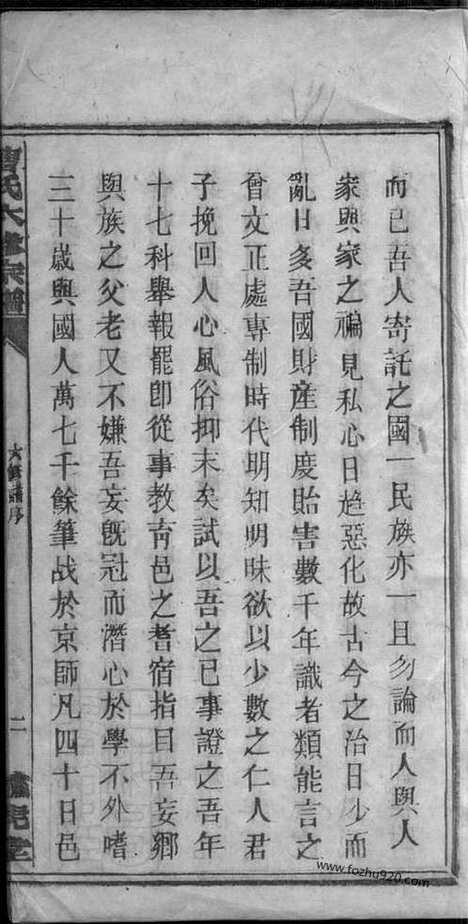 而已吾人寄託之國一民族亦一且勿論而人與人
家與家之褊見私心日趋惡化故古今之治日少而
亂日多吾國財産制度貽害數千年識者類能言之
曾文正處專制時代明知明昧欲以少數之仁人君
子挽回人心風俗抑末矣試以吾之已事證之吾年
十七科舉報罷即從事教育邑之耆宿指目吾妄鄉
與族之父老又不嫌吾妄旣冠而潛心於學不外嗜
三十歲與國人萬七千餘筆战於京師凡四十日邑
氏六修宗譜
六修譜序
二
www.fozhu920.com